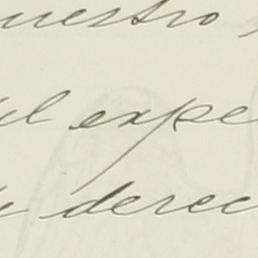 uestro
l expe
derec